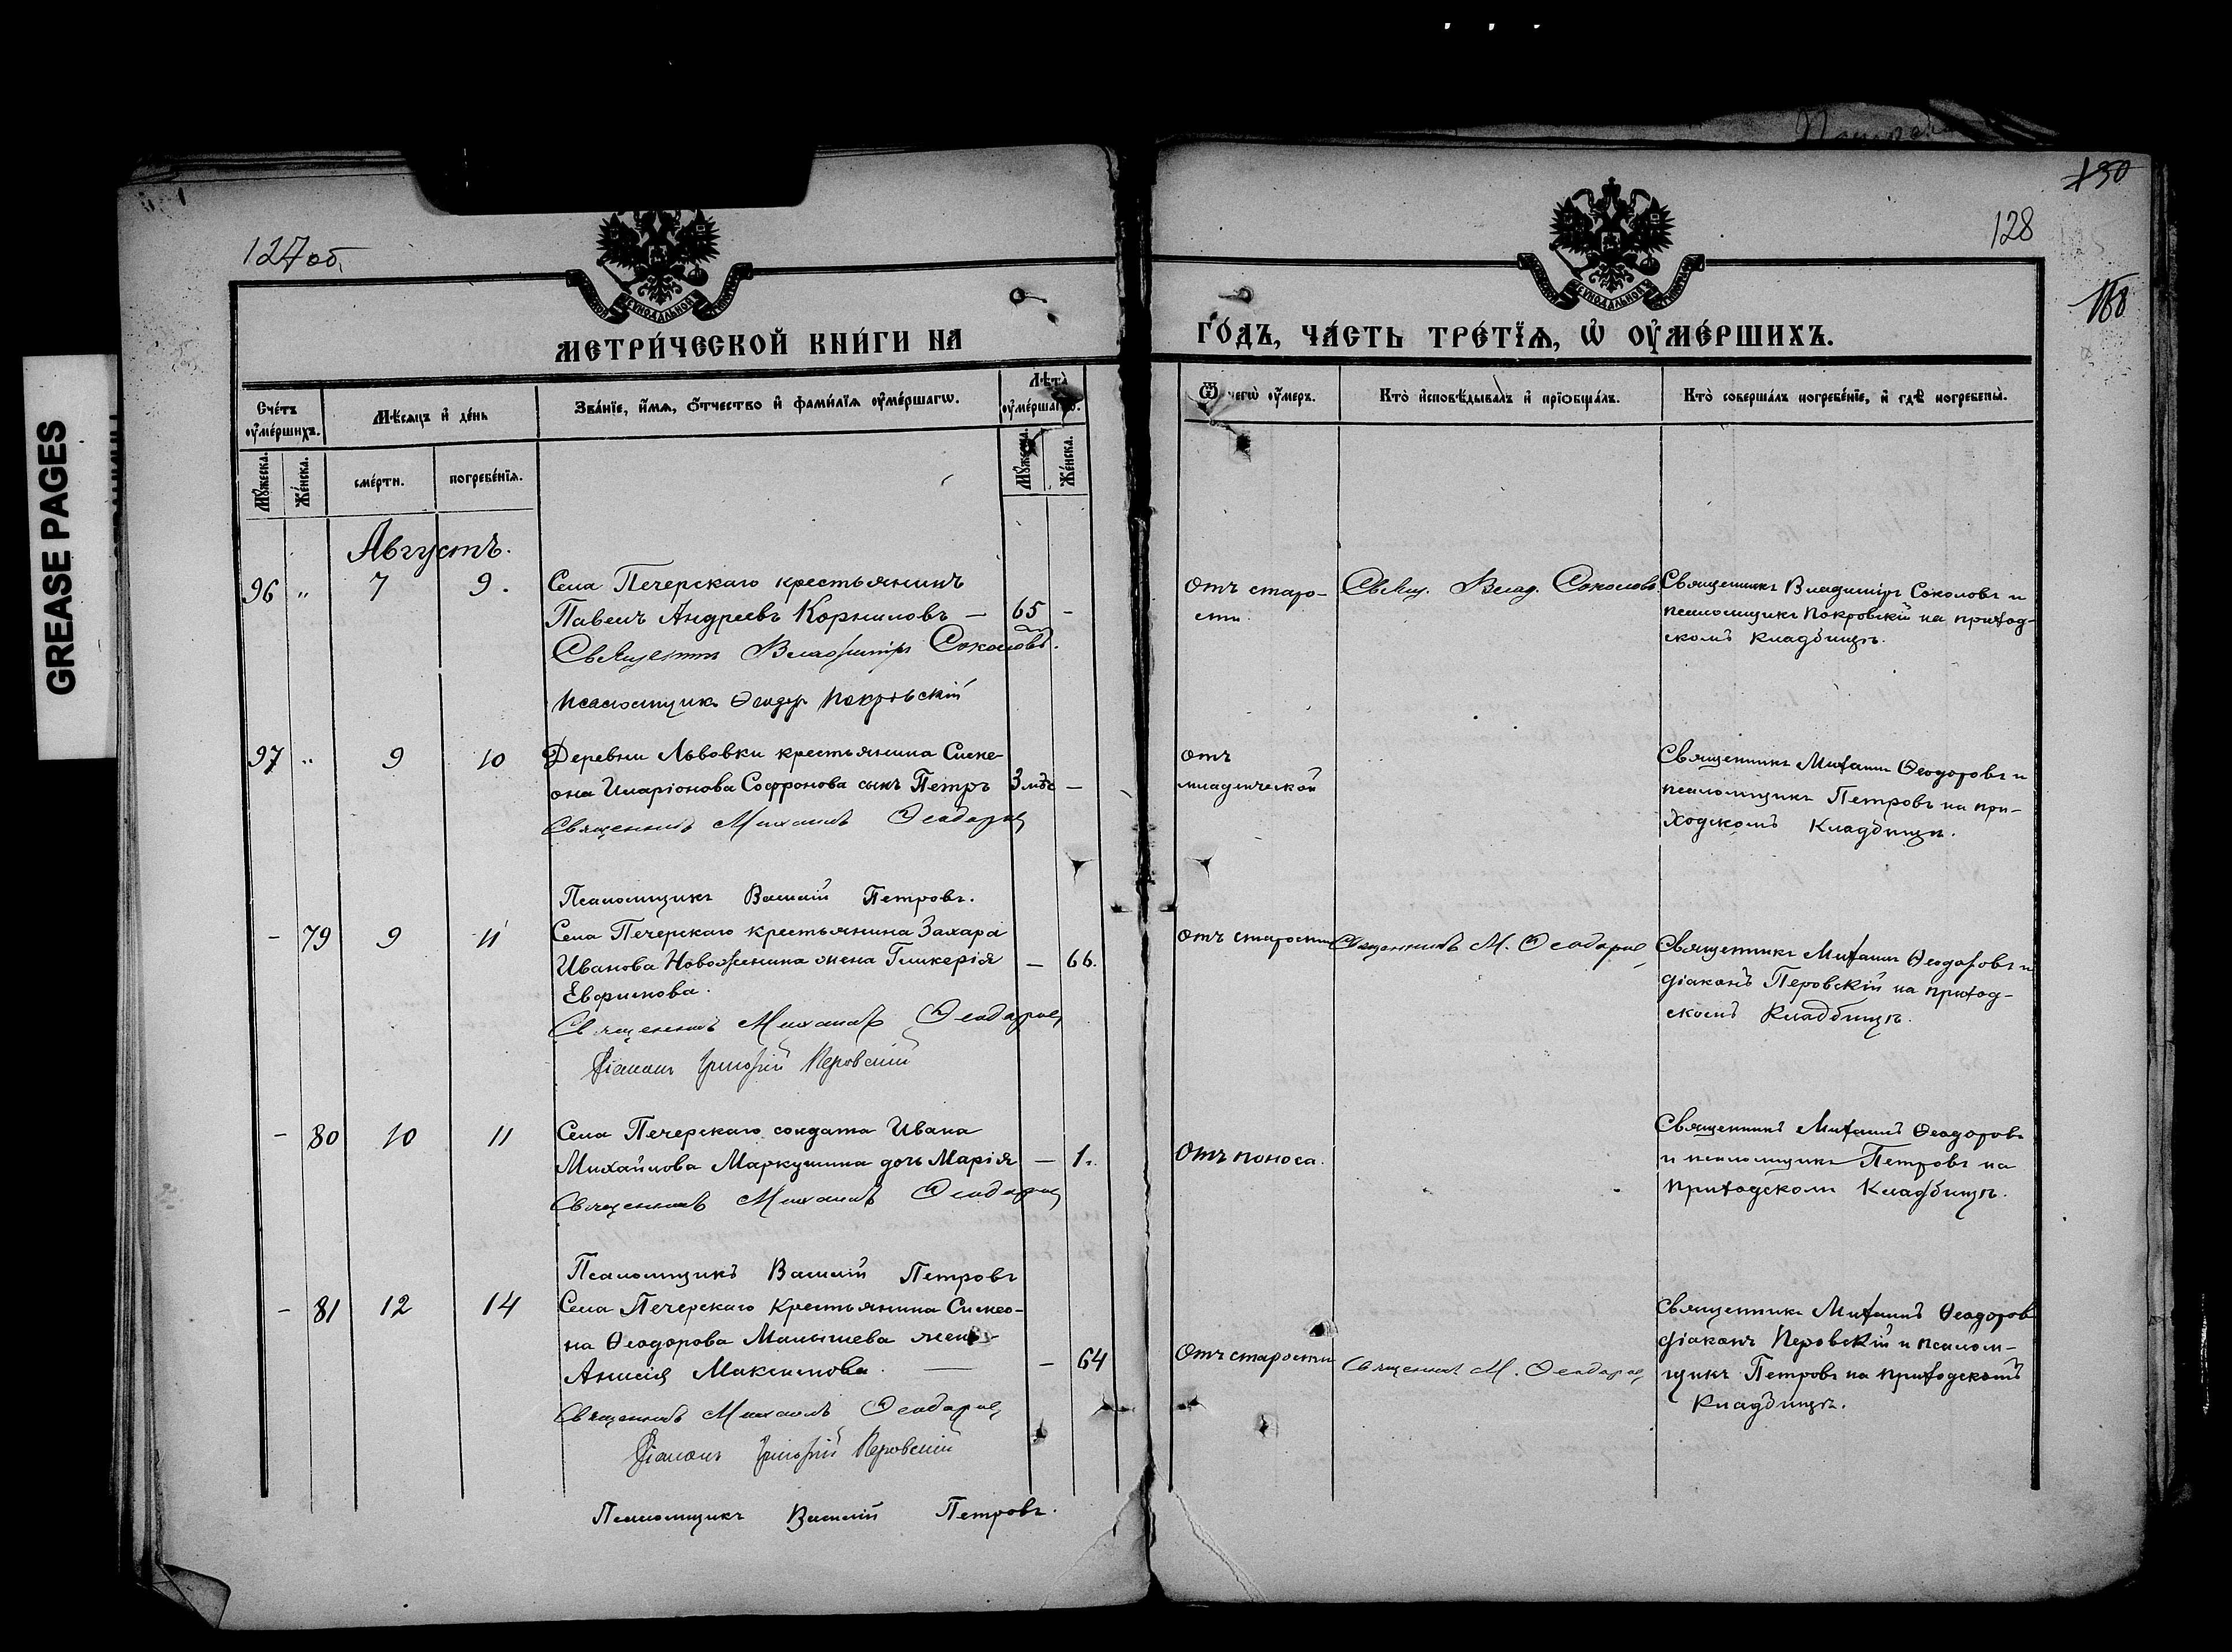 130
128
127 об.
188
GREASE PAGES
МЕТРИ́ЧЕСКОЙ КНИ́ГИ НА ГО́ДЪ, ЧА́СТЬ ТРЕ́ТЇѦ, Ѡ ОУ҆МЕ́РШИХЪ.
Сче́тъ оу҆ме́ршихъ.
Мꙋ́жеска.
Же́нска.
Мѣ́сѧцъ и҆ де́нь
сме́рти.
погребе́нїѧ.
Зва́нїе, и҆́мѧ, ѻ҆́тчество и҆ фами́лїѧ оу҆ме́ршагѡ.
Лѣ́та оу҆ме́ршагѡ.
Мꙋ́жеска.
Же́нска.
Ѿ чегѡ̀ оу҆́меръ.
Кто̀ и҆сповѣ́дывалъ и҆ прїѡбща́лъ.
Кто̀ соверша́лъ погребе́нїе, и҆ гдѣ̀ погребены̀.
Августъ.
96 " 7 9. Села Печерскаго крестьянинъ
Павелъ Андреевъ Корниловъ — 65 -
Священникъ Владиміръ Соколовъ.
Псаломщикъ Ѳеодоръ Покровскій
Отъ старо-
сти.
Свящ. Влад. Соколовъ
Священникъ Владиміръ Соколовъ и
псаломщикъ Покровскій на приход-
скомъ кладбищѣ.
97 " 9 10 Деревни Львовки крестьянина Симе-
она Иларіонова Софронова сынъ Петръ 3 мѣс —
Священникъ Михаилъ Ѳеодоровъ
Псаломщикъ Василій Петровъ.
отъ
младенческой
Священникъ Михаилъ Ѳеодоровъ и
псаломщикъ Петровъ на при-
ходскомъ Кладбищѣ.
- 79 9 11 Села Печерскаго крестьянина Захара
Иванова Новоженина жена Гликерія — 66.
Евфимова.
Священникъ Михаилъ Ѳеодоровъ
Діаконъ Григорій Перовскій
Отъ старости
Священникъ М. Ѳеодоровъ
Священникъ Михаилъ Ѳеодоровъ и
діаконъ Перовскій на приход-
скомъ Кладбищѣ.
- 80 10 11 Села Печерскаго солдата Ивана
Михайлова Маркушина дочь Марія — 1.
Священникъ Михаилъ Ѳеодоровъ
Псаломщикъ Василій Петровъ
Отъ поноса.
Священникъ Михаилъ Ѳеодоровъ
и псаломщикъ Петровъ на
приходскомъ Кладбищѣ.
- 81 12 14 Села Печерскаго Крестьянина Симео-
на Ѳеодорова Малышева жена
Анисія Максимова. — - 64
Священникъ Михаилъ Ѳеодоровъ
Діаконъ Григорій Перовскій
Псаломщикъ Василій Петровъ.
Отъ старости
Священникъ М. Ѳеодоровъ
Священникъ Михаилъ Ѳеодоровъ
діаконъ Перовскій и псалом-
щикъ Петровъ на приходскомъ
Кладбищѣ.